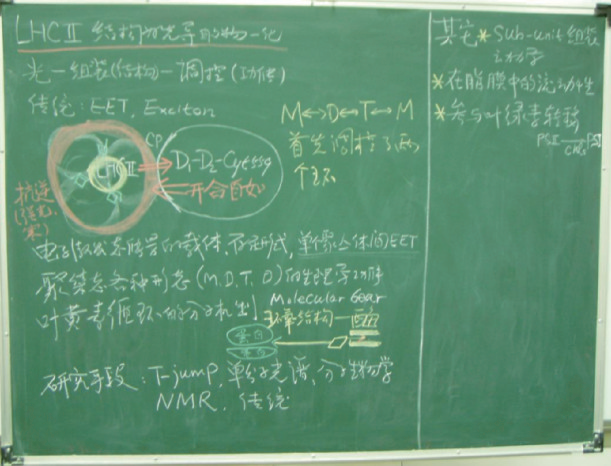 LHCⅡ 结构
光—组装(结构)—调控(功能)
传统: EET, Exciton
M↔D↔T↔M
首先调控
CP
LHCⅡ
D1-D2-Cyt559
开合自如
抗逆
(强光,
电子激发态能量的载体、存在形式, 单体间EET
聚集态各种形态(M.D.T.O)的生理学功能
叶黄素循环的分子机制
Molecular Gear
结构
蛋白
蛋白
研究手段: T-jump, 单分子光谱, 分子生物学
NMR, 传统
其它 * Sub-unit 组装
动力学
* 在脂膜中的流动性
* 参与叶绿素转移
PSⅡ